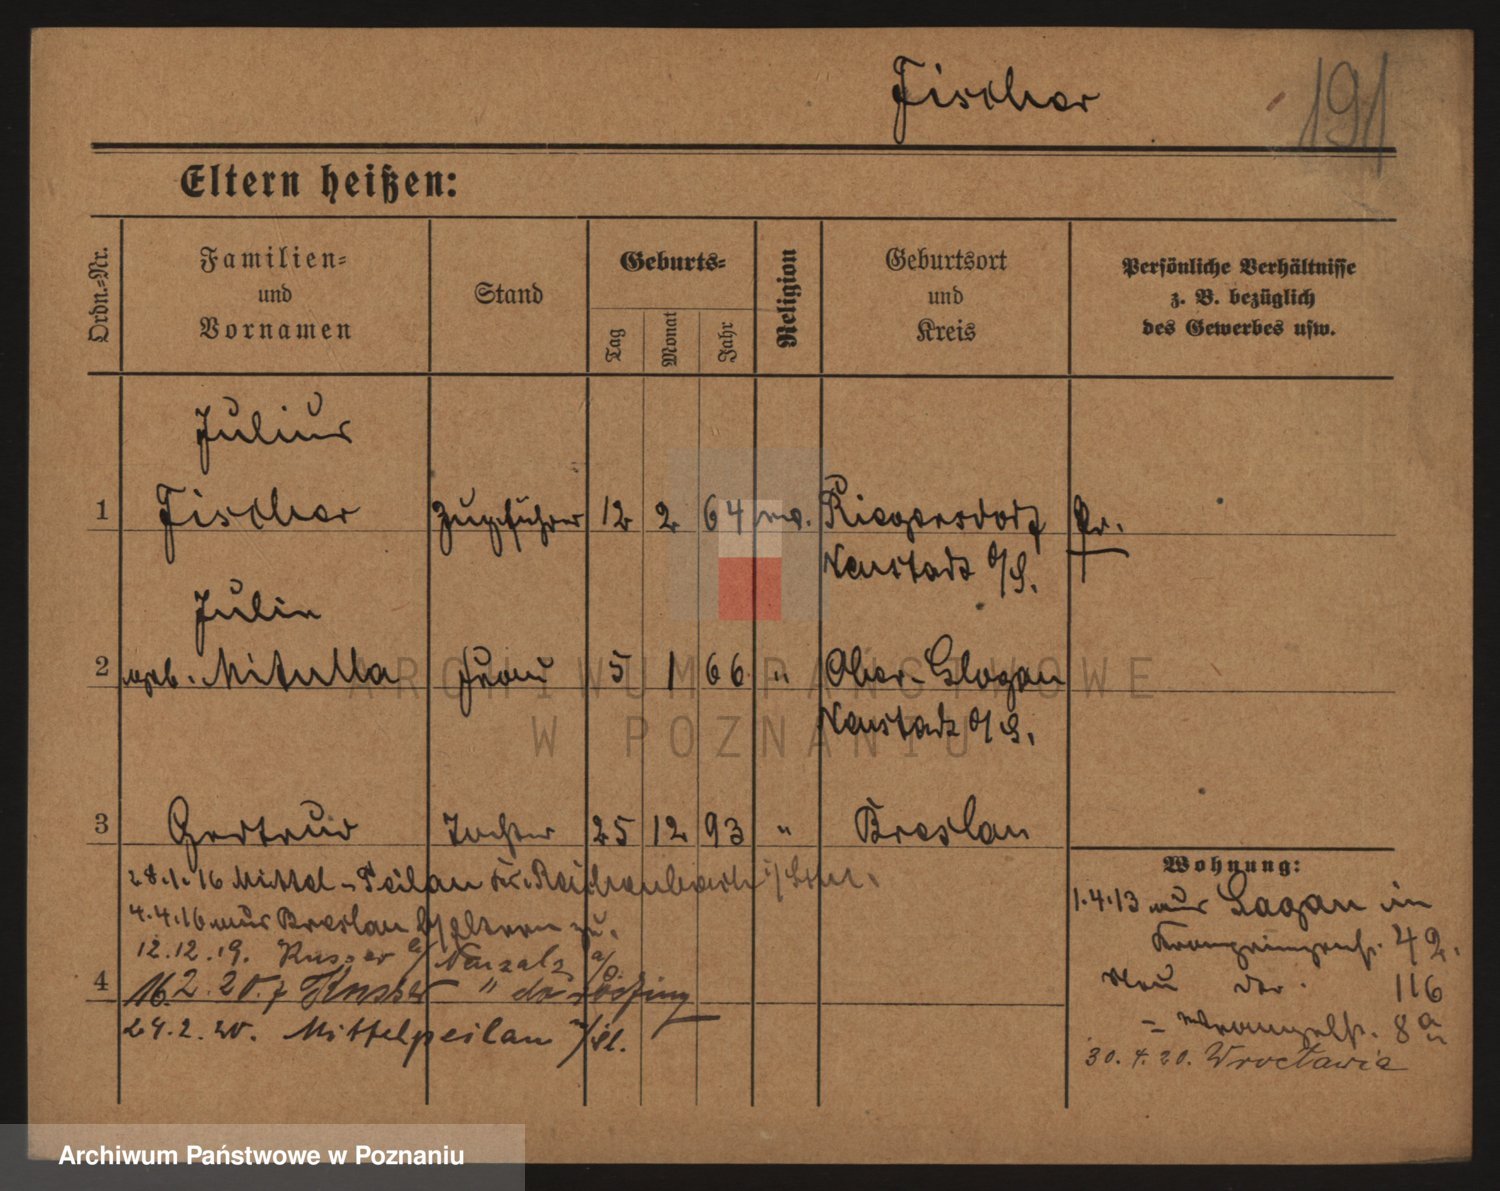 Fischer
191
Eltern heißen:
Ordn.-Nr.
Familien-
und
Vornamen
Stand
Geburts-
Tag
Monat
Jahr
Religion
Geburtsort
und
Kreis
Persönliche Verhältnisse
z. B. bezüglich
des Gewerbes usw.
Julius
1 Fischer Zugführer 12 2 64 Riegersdorf Pr.
Neustadt O/S.
Julie
2 geb. Mitulla Frau 5 1 66 " Ober-Glogau
Neustadt O/S.
3 Gertrud Tochter 25 12 93 " Breslau
28.1.16 Mittel-Peilau Kr. Reichenbach i/Schl.
4.4.16 aus Breslau Eltern zu.
12.12.19. Kusser b/ Neusalz a/O.
4 16.2.20. Kusser "
24.2.20. Mittelpeilau i/Sl.
Wohnung:
1.4.13 aus Sagan in
Kronprinzenst. 42.
Neu der 116
= Wrangelst. 8a
30.4.20. Wrocławia
ARCHIWUM PAŃSTWOWE
W POZNANIU
Archiwum Państwowe w Poznaniu